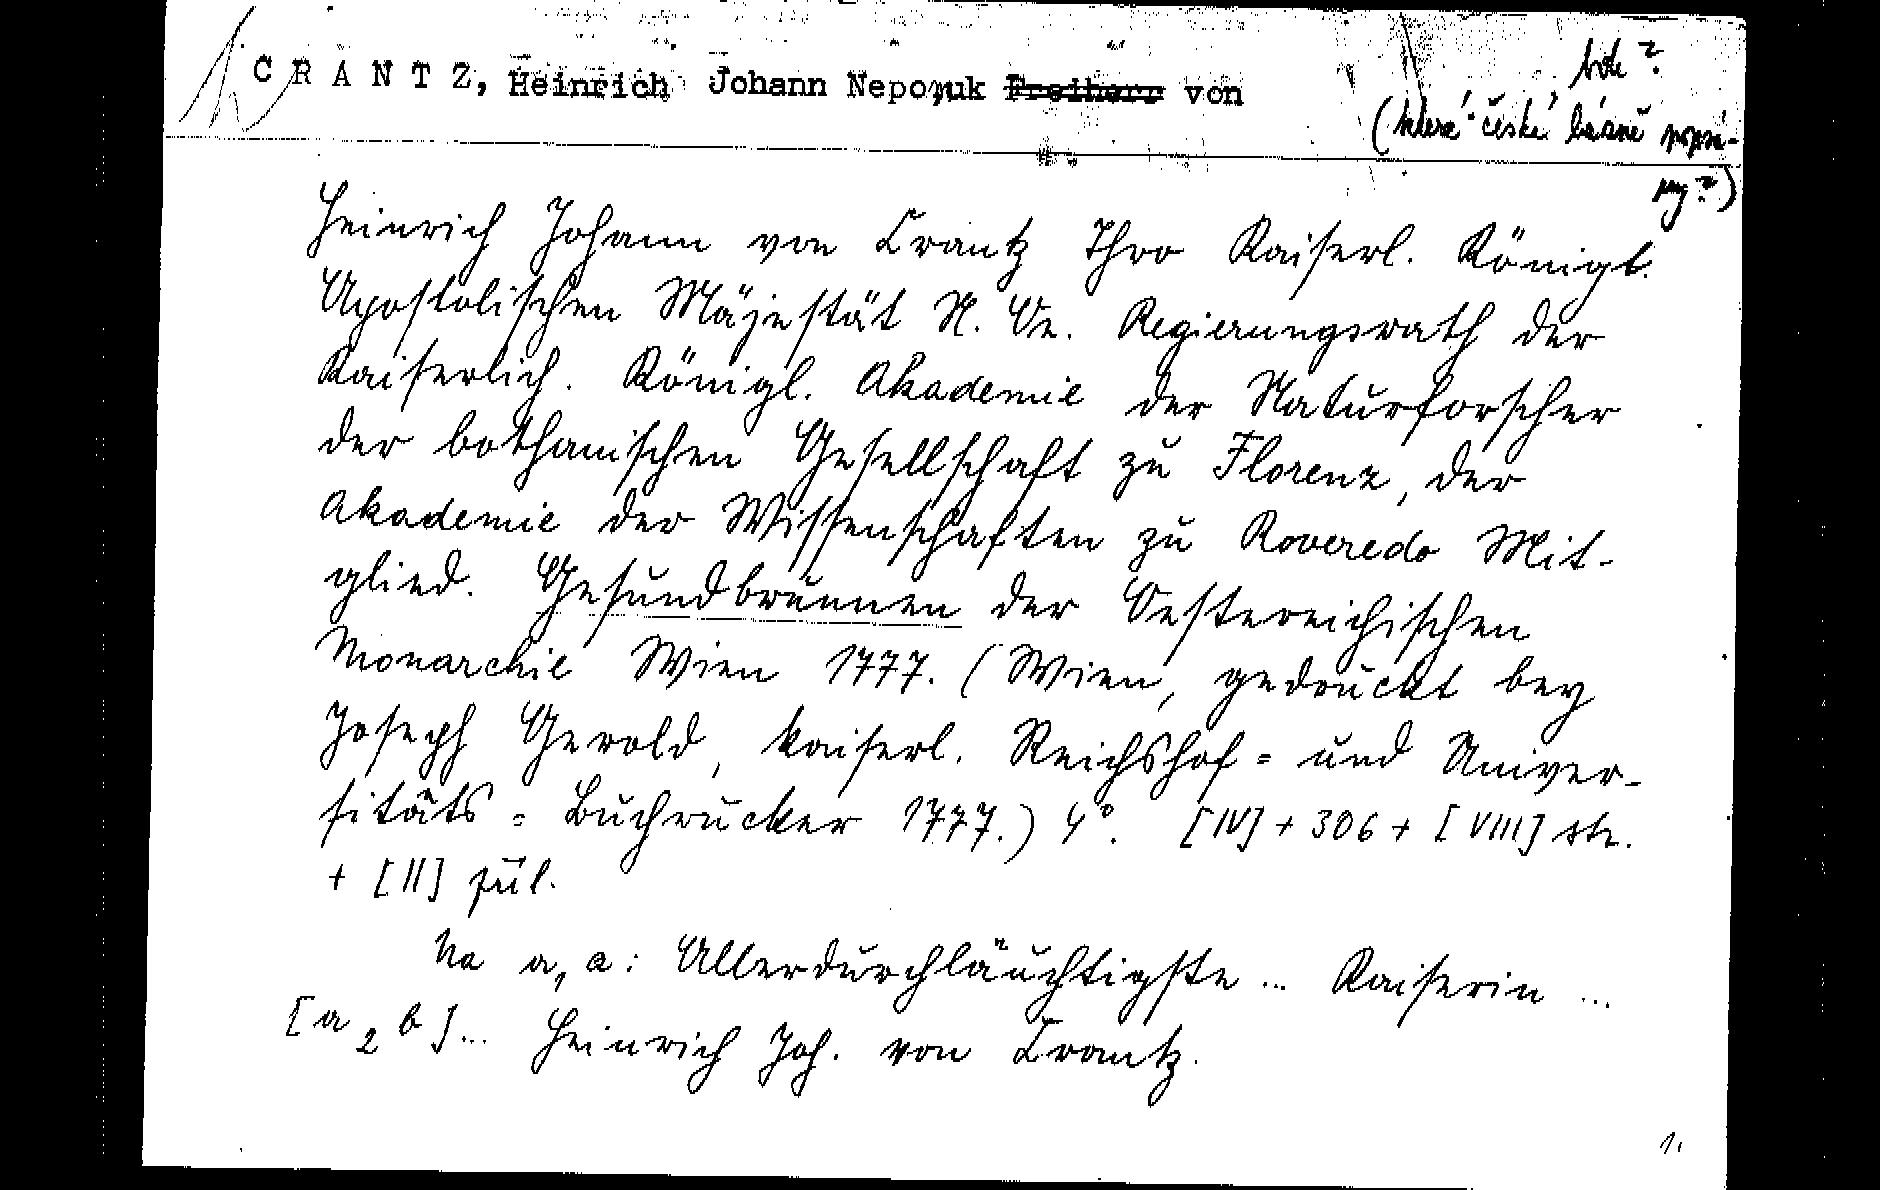 CRANTZ, Heinrich Johann Nepomuk Freiherr von
(které české lázně popsá-
ny?)
Heinrich Johann von Crantz Ihro Kaiserl. Königl.
Apostolischen Mäjestät N. Oe. Regierungsrath der
Kaiserlich. Königl. Akademie der Naturforscher
der bothanischen Gesellschaft zu Florenz, der
Akademie der Wissenschaften zu Roveredo Mit-
glied. Gesundbrunnen der Oestereichischen
Monarchie Wien 1777. (Wien, gedruckt bey
Joseph Gerold, kaiserl. Reichshof= und Univer-
sitäts = Buchrucker 1777.) 4°. [IV] + 306 + [VIII] str.
+ [II] příl.
Na a, a: Allerdurchläuchtigste ... Kaiserin ...
[a 2 b] ... Heinrich Joh. von Crantz.
1.